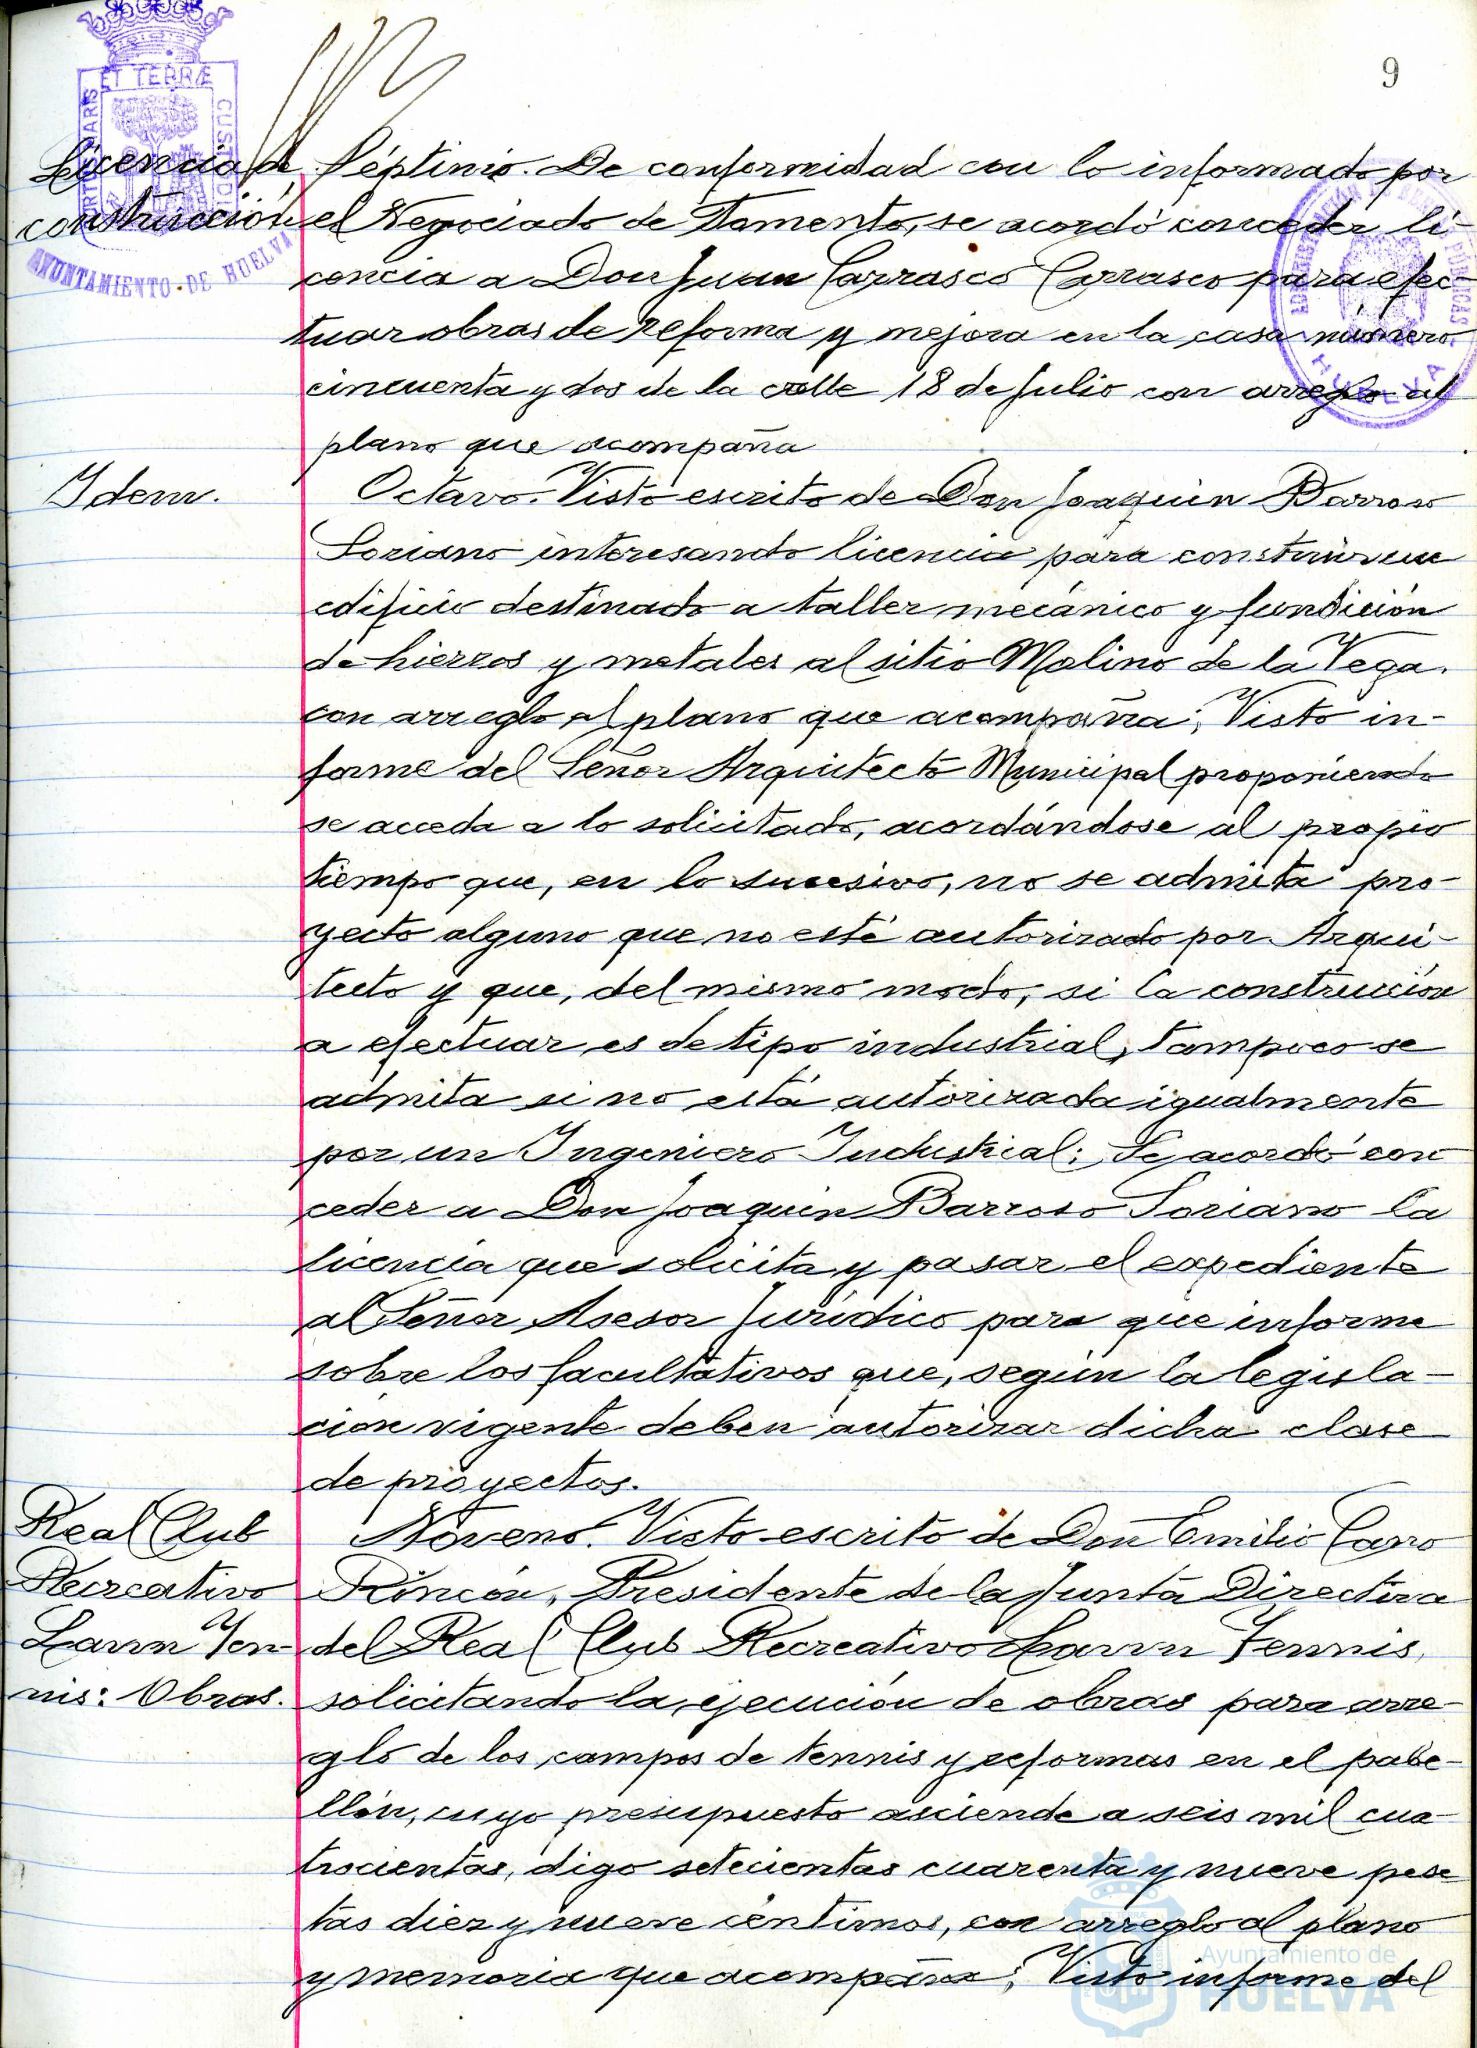 9
ET TERRÆ
CUSTODI
PORTUS MARIS
AYUNTAMIENTO DE HUELVA
HUELVA
Licencia de
construcción
Séptimo. De conformidad con lo informado por
el Negociado de Fomento, se acordó conceder li-
cencia a Don Juan Carrasco Carrasco para efec-
tuar obras de reforma y mejora en la casa número
cincuenta y dos de la calle 18 de Julio con arreglo al
plano que acompaña
Idem.
Octavo. Visto escrito de Don Joaquin Barroso
Soriano interesando licencia para construir un
edificio destinado a taller mecánico y fundición
de hierros y metales al sitio Molino de la Vega.
con arreglo al plano que acompaña; Visto in-
forme del Señor Arquitecto Municipal proponiendo
se acceda a lo solicitado, acordándose al propio
tiempo que, en lo sucesivo, no se admita pro-
yecto alguno que no esté autorizado por Arqui-
tecto y que, del mismo modo, si la construcción
a efectuar es de tipo industrial, tampoco se
admita si no está autorizada igualmente
por un Ingeniero Industrial; Se acordó con
ceder a Don Joaquin Barroso Soriano la
licencia que solicita y pasar el expediente
al Señor Asesor Jurídico para que informe
sobre los facultativos que, según la legisla-
ción vigente deben autorizar dicha clase
de proyectos.
Real Club
Recreativo
Lawn Ten-
nis: Obras.
Noveno. Visto escrito de Don Emilio Cano
Rincón, Presidente de la Junta Directiva
del Real Club Recreativo Lawn Tennis,
solicitando la ejecución de obras para arre-
glo de los campos de tennis y reformas en el pabe-
llón, cuyo presupuesto asciende a seis mil cua-
trocientas, digo setecientas cuarenta y nueve pese
tas diez y nueve céntimos, con arreglo al plano
y memoria que acompaña; Visto informe del
Ayuntamiento de
HUELVA